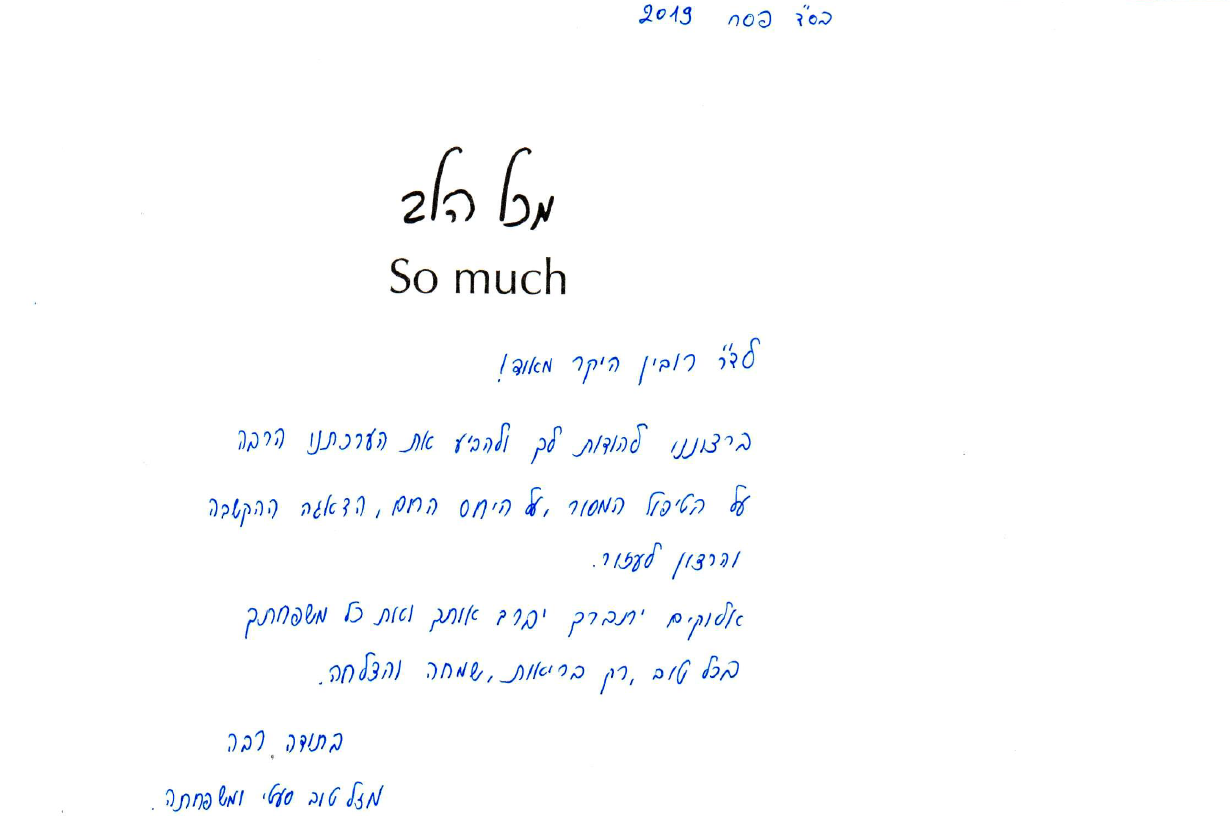 בס"ד פסח 2019
מכל הלב
So much
לד"ר רובין היקר מאוד!
ברצוננו להודות לך ולהביע את הערכתנו הרבה
על הטיפול המסור, על היחס החם, הדאגה ההקשבה
והרצון לעזור.
אלוקים יתברך יברך אותך ואת כל משפחתך
בכל טוב, רק בריאות, שמחה והצלחה.
בתודה רבה
מזל טוב סעטי ומשפחתה.